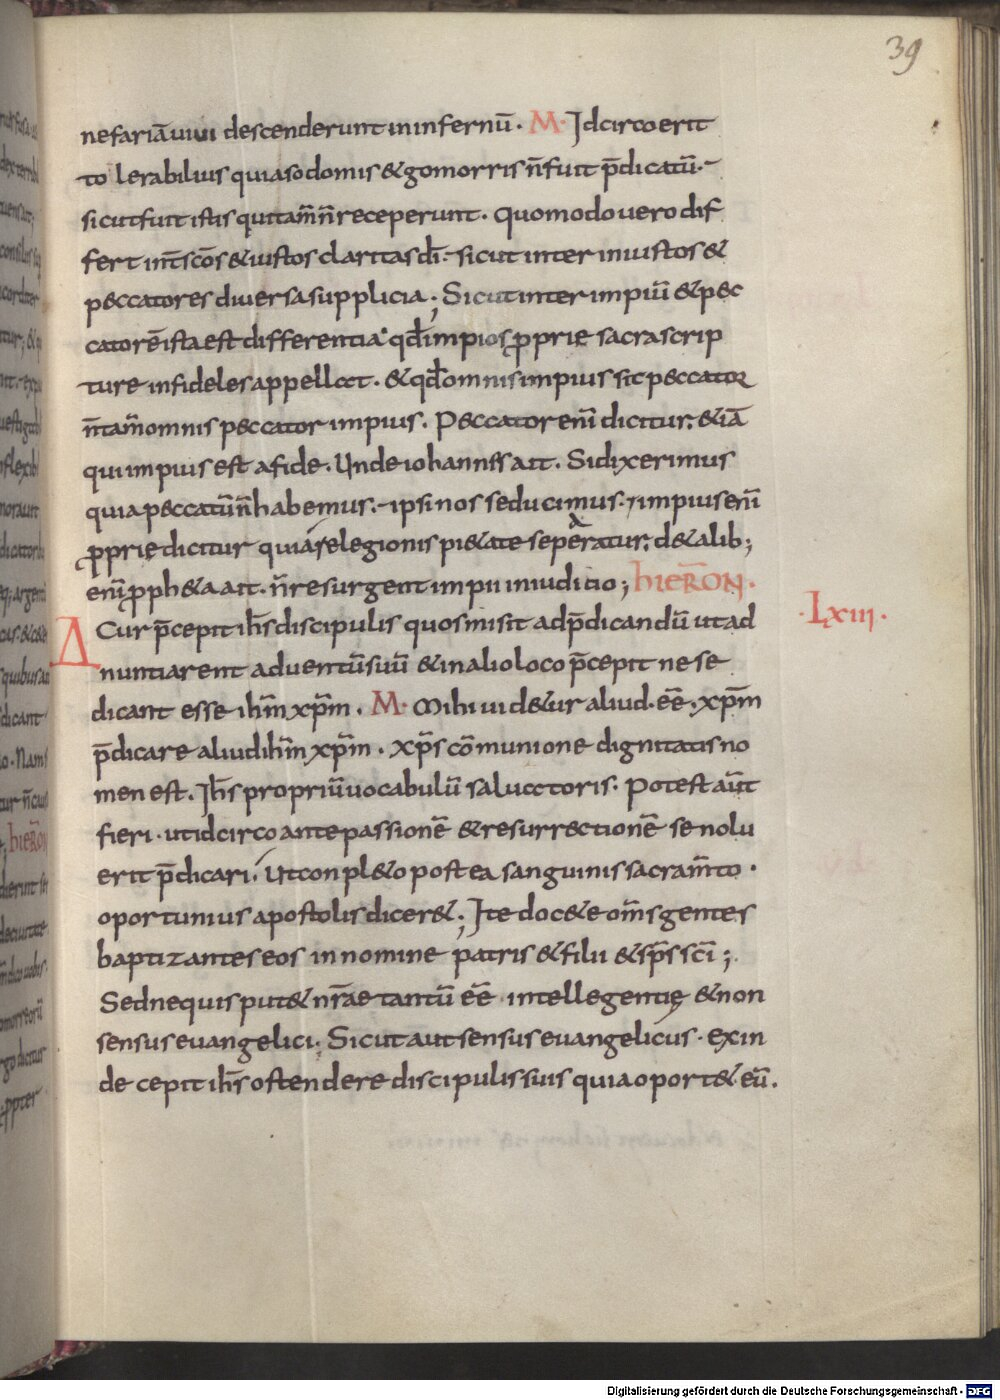 39
nefariā uiui descenderunt in infernū · M · Idcirco erit
to lerabilius quia sodomis & gomorris n̄ fuit p̄dicatū ·
sicut fuit istis qui tam̄ n̄ receperunt · quomodo uero dif
fert int̄ sc̄os & iustos claritas d̄i · sicut inter iniustos &
peccatores diuersa supplicia ; Sicut inter impiū & pec
catorē ista est differentia · qd̄ impios ꝓprie sacra scrip
ture infideles appellat · & qd̄ omnis impius sit peccator
n̄ tam̄ omnis peccator impius · Peccator enī dicitur · & iā
qui impius est a fide · Unde iohannes ait · Si dixerimus
quia peccatū n̄ habemus · ipsi nos seducimus · impius enī
ꝓprię dicitur quia relegionis pi&ate seperatur · de&alib;
enī ꝓph&a ait · n̄ resurgent impii in iuditio ; hieRON ·
Δ Cur p̄cepit ih̄s discipulis quos misit ad p̄dicandū ut ad · Lxiii ·
nuntiarent aduentū suū & in alio loco p̄cepit ne se
dicant esse ih̄m xp̄m · M · Mihi uid&ur aliud · eē · xp̄m
p̄dicare aliud ih̄m xp̄m · xp̄s cōmunione dignitatis no
men est · Ih̄s propriū uocabulū saluatoris · Potest aūt
fieri · ut idcirco ante passionē & resurrectionē se nolu
erit p̄dicari · Ut conpl&o postea sanguinis sacram̄to ·
oportunius apostolis dicer& ; Ite doc&e om̄s gentes
baptizantes eos in nomine patris & filii & sp̄s sc̄i ;
Sed nequis put& nr̄ae tantū eē intellegentię & non
sensus euangelici · Sicut aut sensus euangelicus · exin
de cepit ih̄s ostendere discipulis suis quia oport& eū ·
Digitalisierung gefördert durch die Deutsche Forschungsgemeinschaft - DFG